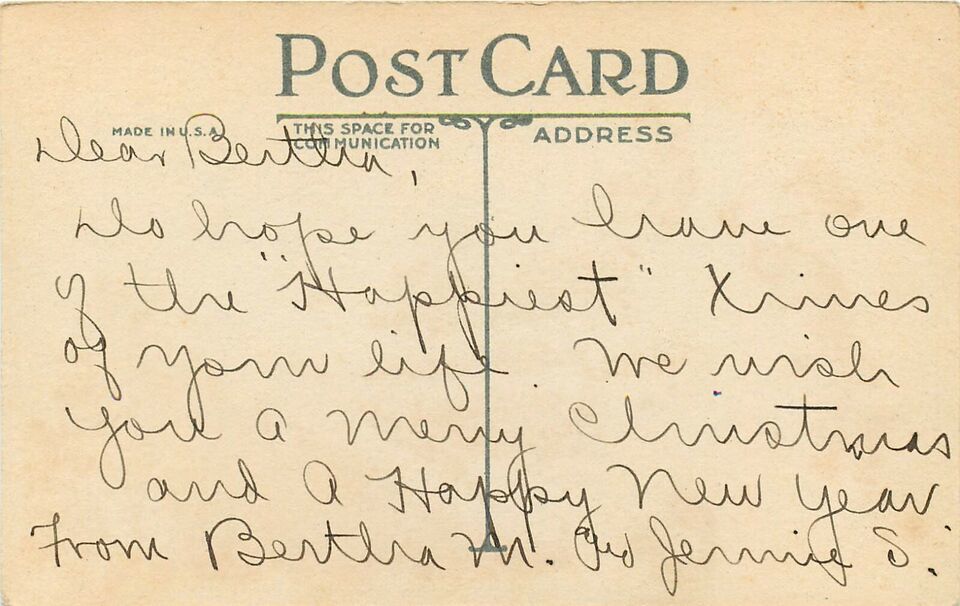 POST CARD
MADE IN U.S.A.
THIS SPACE FOR COMMUNICATION
ADDRESS
Dear Bertha,
Do hope you have one
of the "Happiest" Xmes
of your life. We wish
you a Merry Christmas
and A Happy New Year
From Bertha M. And Jennie S.